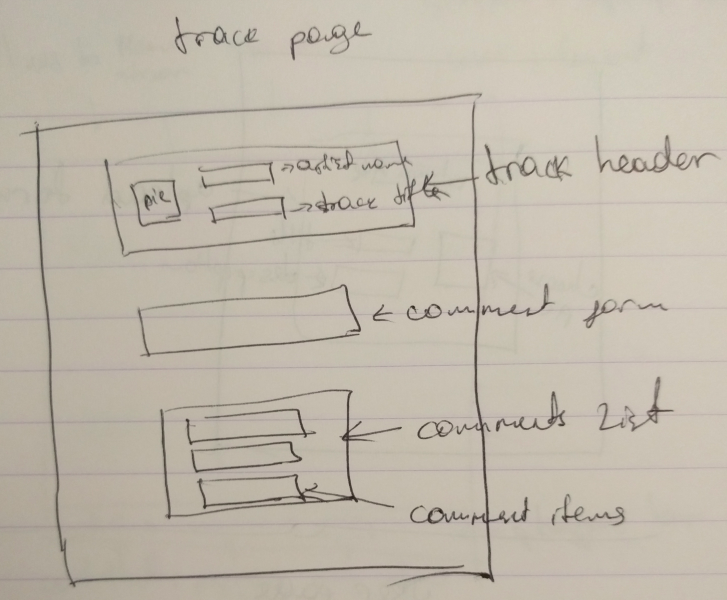 track page
pic
→ artist name
→ track title
← track header
← comment form
← comments list
← comment items